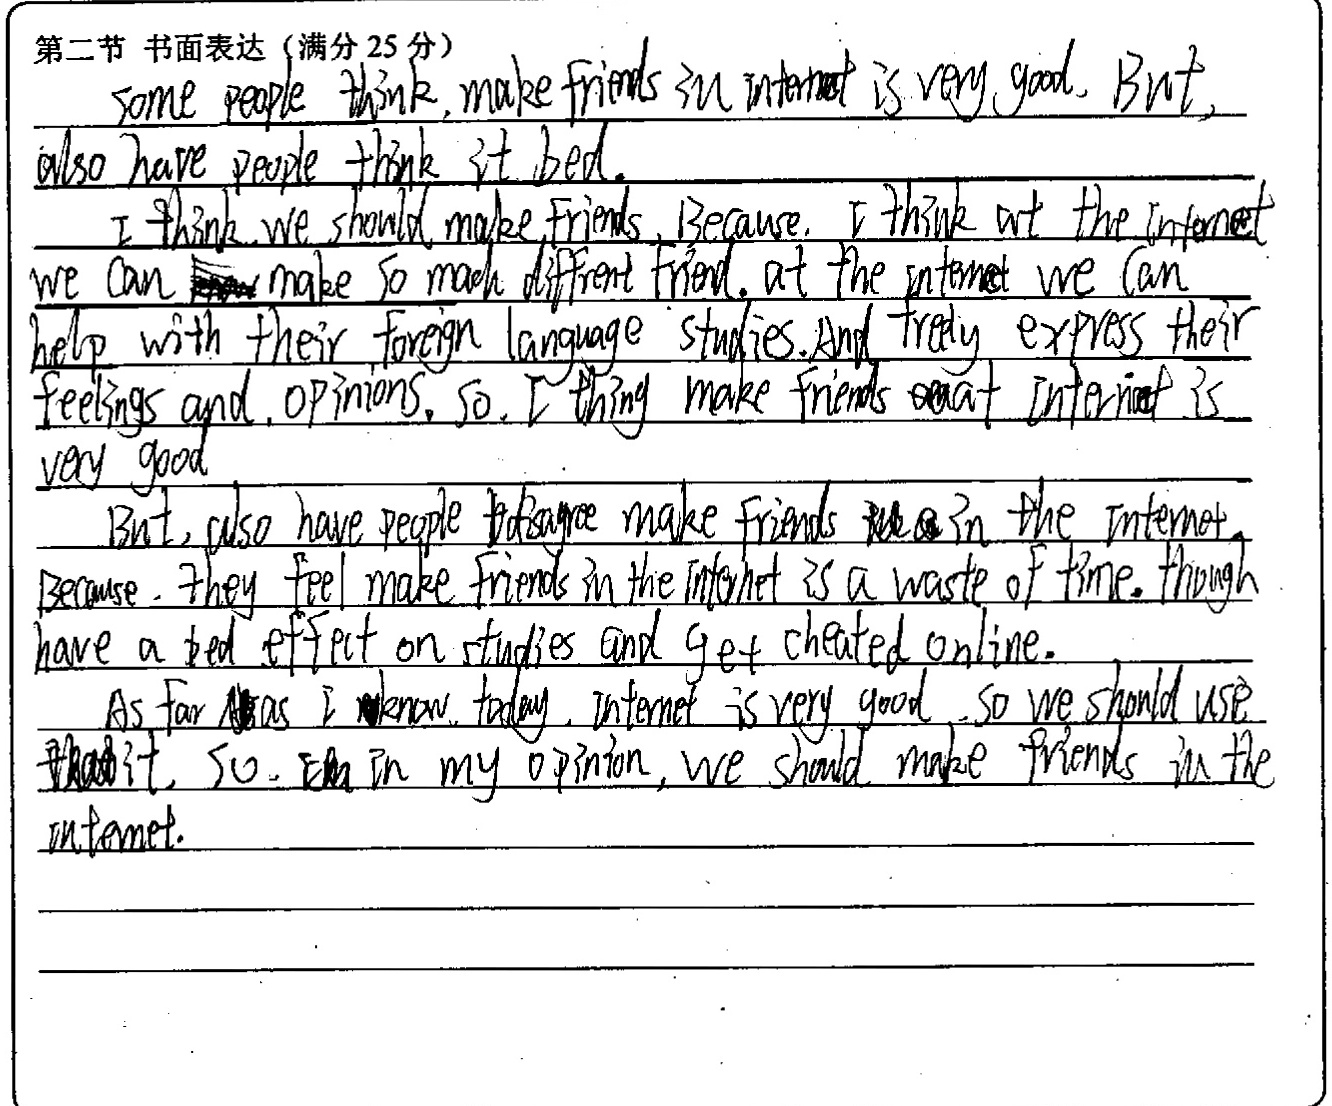 第二节 书面表达（满分 25 分）
some people think. make friends in internet is very good. But,
also have people think it bed.
I think. we should make friends. Because. I think at the Internet
we can make so mach diffrent friend. at the internet we can
help with their foreign language studies. And freely express their
feelings and. opinions. so. I thing make friends at Internet is
very good
But, also have people disagree make friends in the Internet.
Because. they feel make friends in the Internet is a waste of time. though
have a bed effect on studies and get cheated online.
As far as I know. today. internet is very good. so we should use
it. so. in my opinion, we should make friends in the
internet.